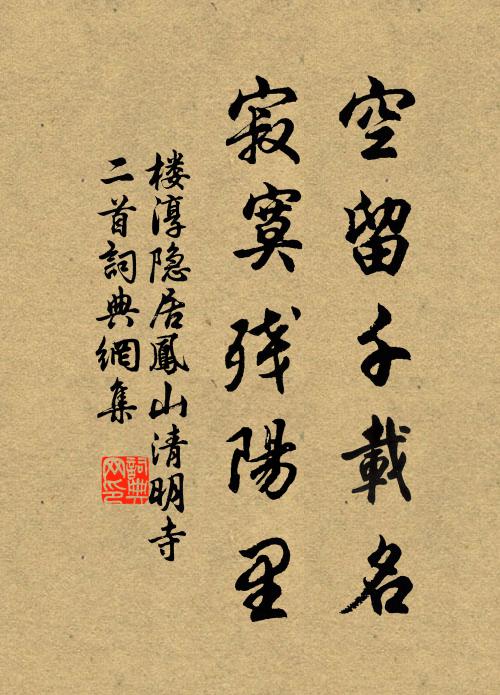 空留千載名
寂寞残陽里
楼淳隐居鳳山清明寺
二首詞典網集
詞典
网印